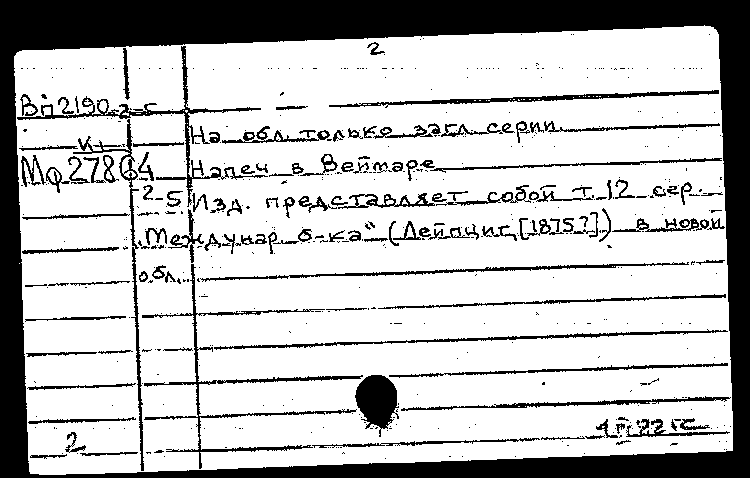 2
Вп 2190 2-5
На обл. только загл. серии.
К+
Мф 27864 Напеч в Веймаре
2-5 Изд. представляет собой т. 12 сер.
„Междунар б-ка“ (Лейпциг, [1875?]) в новой
обл.
2